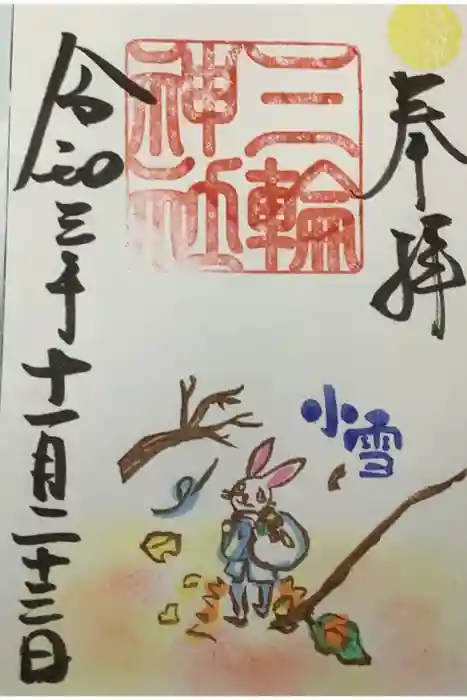 奉拝
三輪
神社
小雪
令和三年十一月二十二日